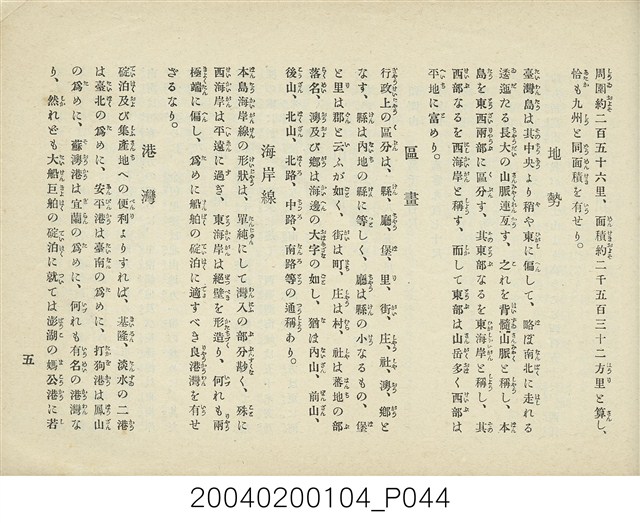 周圍約二百五十六里、面積約二千五百三十二方里と算し、
恰も九州と同面積を有せり。
地勢
臺灣島は其中央より稍や東に偏して、略ぼ南北に走れる
逶迤たる長大の山脈連亙す、之れを背髓山脈と稱し、本
島を東西兩部に區分す、其東部なるを東海岸と稱し、其
西部なるを西海岸と稱す、而して東部は山岳多く西部は
平地に富めり。
區畫
行政上の區分は、縣、廳、堡、里、街、庄、社、澳、鄕と
なす、縣は內地の縣に等しく、廳は縣の小なるもの、堡
と里は郡と云ふが如く、街は町、庄は村、社は蕃地の部
落名、澳及び鄕は海邊の大字の如し、猶ほ內山、前山、
後山、北山、北路、中路、南路等の通稱あり。
海岸線
本島海岸線の形狀は、單純にして灣入の部分尠く、殊に
西海岸は平遠に過ぎ、東海岸は絕壁を形造り、何れも兩
極端に偏し、爲めに船舶の碇泊に適すべき良港灣を有せ
ざるなり。
港灣
碇泊及び集產地への便利よりすれば、基隆、淡水の二港
は臺北の爲めに、安平港は臺南の爲めに、打狗港は鳳山
の爲めに、蘇澳港は宜蘭の爲めに、何れも有名の港灣な
り、然れども大船巨舶の碇泊に就ては澎湖の媽公港に若
五
20040200104_P044